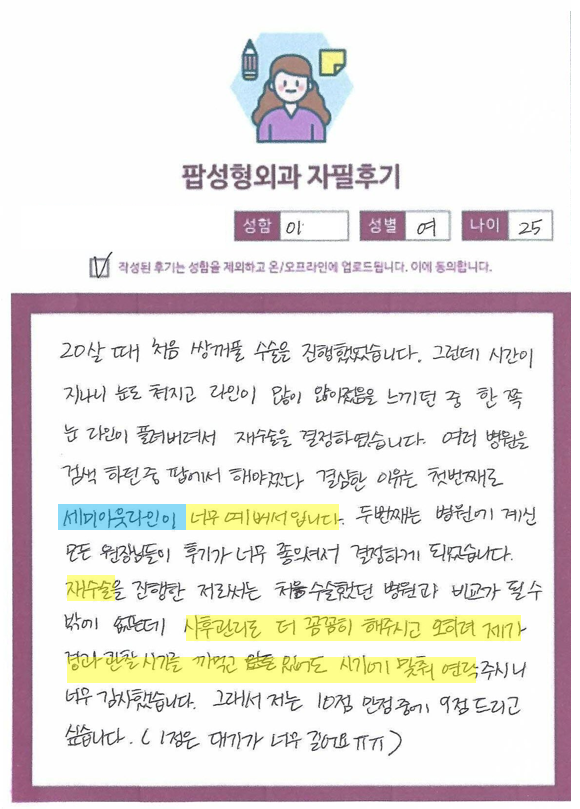 팝성형외과 자필후기
성함 이 성별 여 나이 25
작성된 후기는 성함을 제외하고 온/오프라인에 업로드됩니다. 이에 동의합니다.
20살 때 처음 쌍꺼풀 수술을 진행했었습니다. 그런데 시간이
지나니 눈도 쳐지고 라인이 많이 얇아졌음을 느끼던 중 한 쪽
눈 라인이 풀려버려서 재수술을 결정하였습니다. 여러 병원을
검색 하던중 팝에서 해야겠다 결심한 이유는 첫번째로
세미아웃라인이 너무 예뻐서입니다. 두번째는 병원에 계신
모든 원장님들이 후기가 너무 좋으셔서 결정하게 되었습니다.
재수술을 진행한 저로써는 처음수술했던 병원과 비교가 될수
밖에 없는데 사후관리도 더 꼼꼼히 해주시고 오히려 제가
경과 관찰 시기를 까먹고 있어도 시기에 맞춰 연락주시니
너무 감사했습니다. 그래서 저는 10점 만점중에 9점 드리고
싶습니다. ( 1점은 대기가 너무 길어요ㅠㅠ )